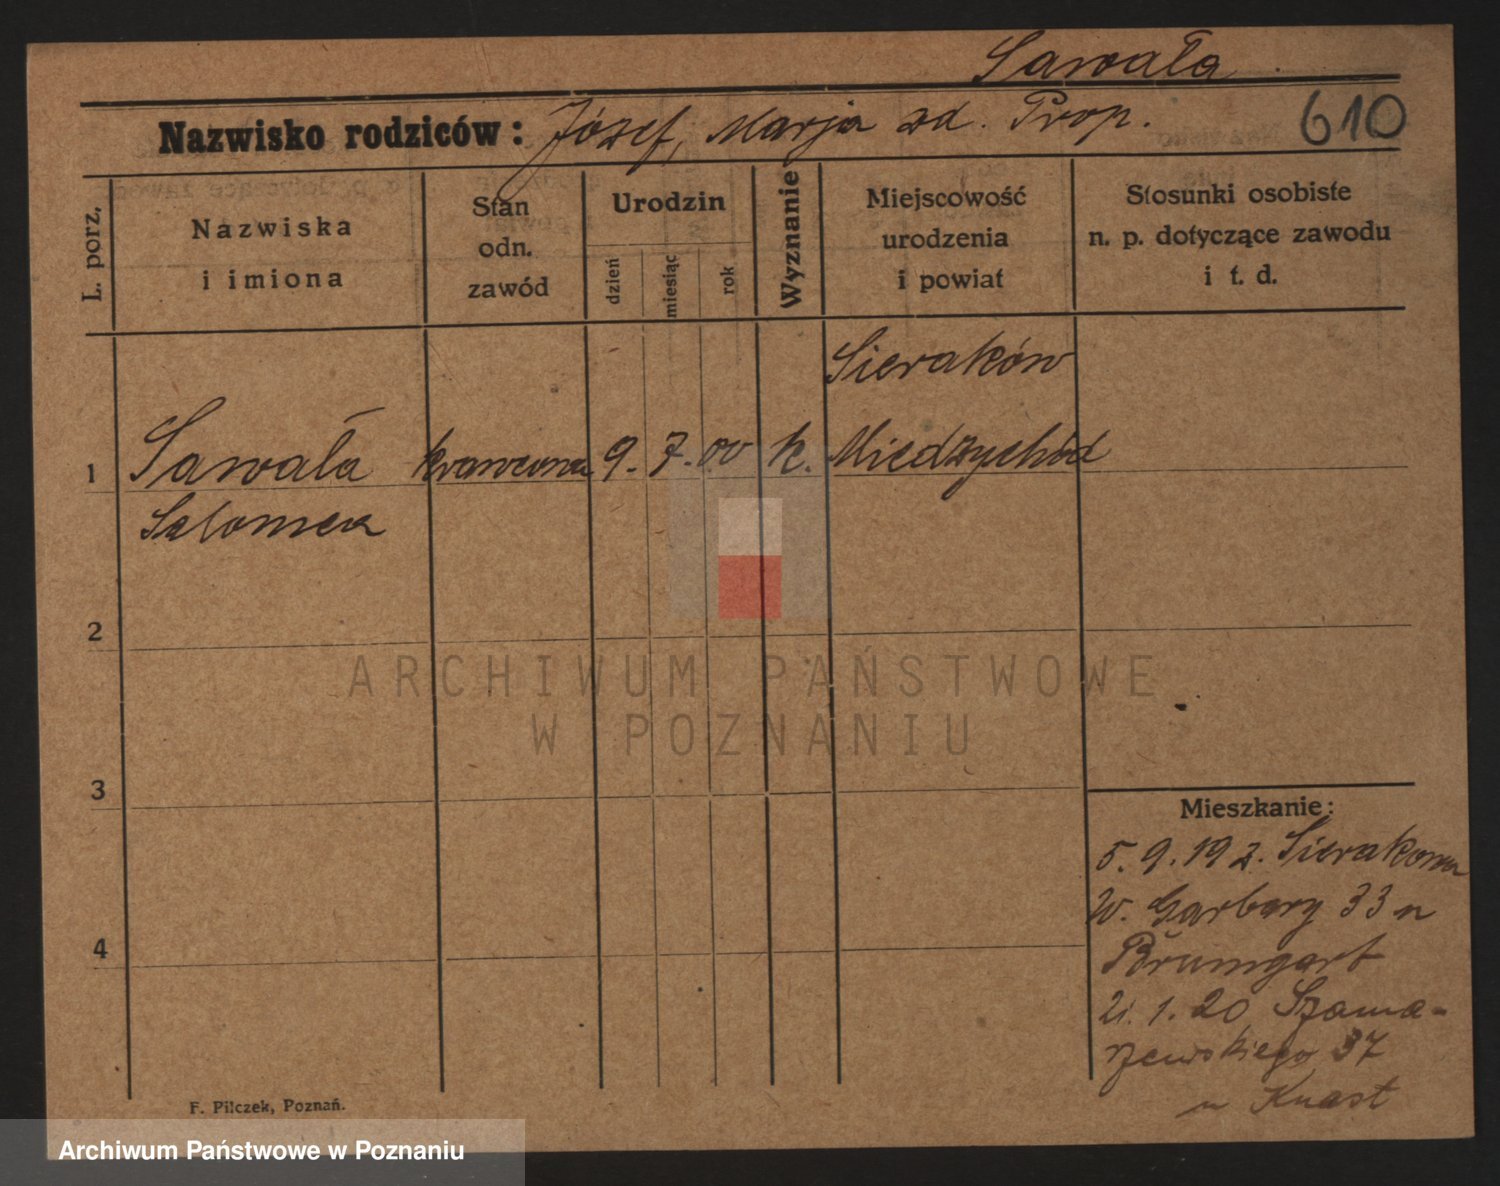 Sawała
Nazwisko rodziców: Józef, Marja zd. Prop.
610
L. porz.
Nazwiska
i imiona
Stan
odn.
zawód
Urodzin
dzień
miesiąc
rok
Wyznanie
Miejscowość
urodzenia
i powiat
Stosunki osobiste
n. p. dotyczące zawodu
i t. d.
Sieraków
1 Sawała krawcowa 9. 7. 00 k. Miedzychód
Salomea
2
ARCHIWUM PAŃSTWOWE
W POZNANIU
3
Mieszkanie:
5. 9. 19 z. Sierakowa
W. Garbary 33 u
4
Baumgart
21. 1. 20 Szama-
rzewskiego 37
u Knast
F. Pilczek, Poznań.
Archiwum Państwowe w Poznaniu